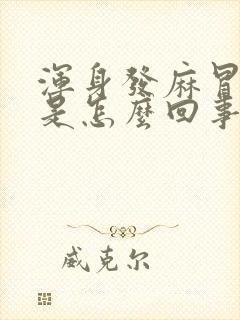 渾身發麻冒
是怎麼回事
威克尔